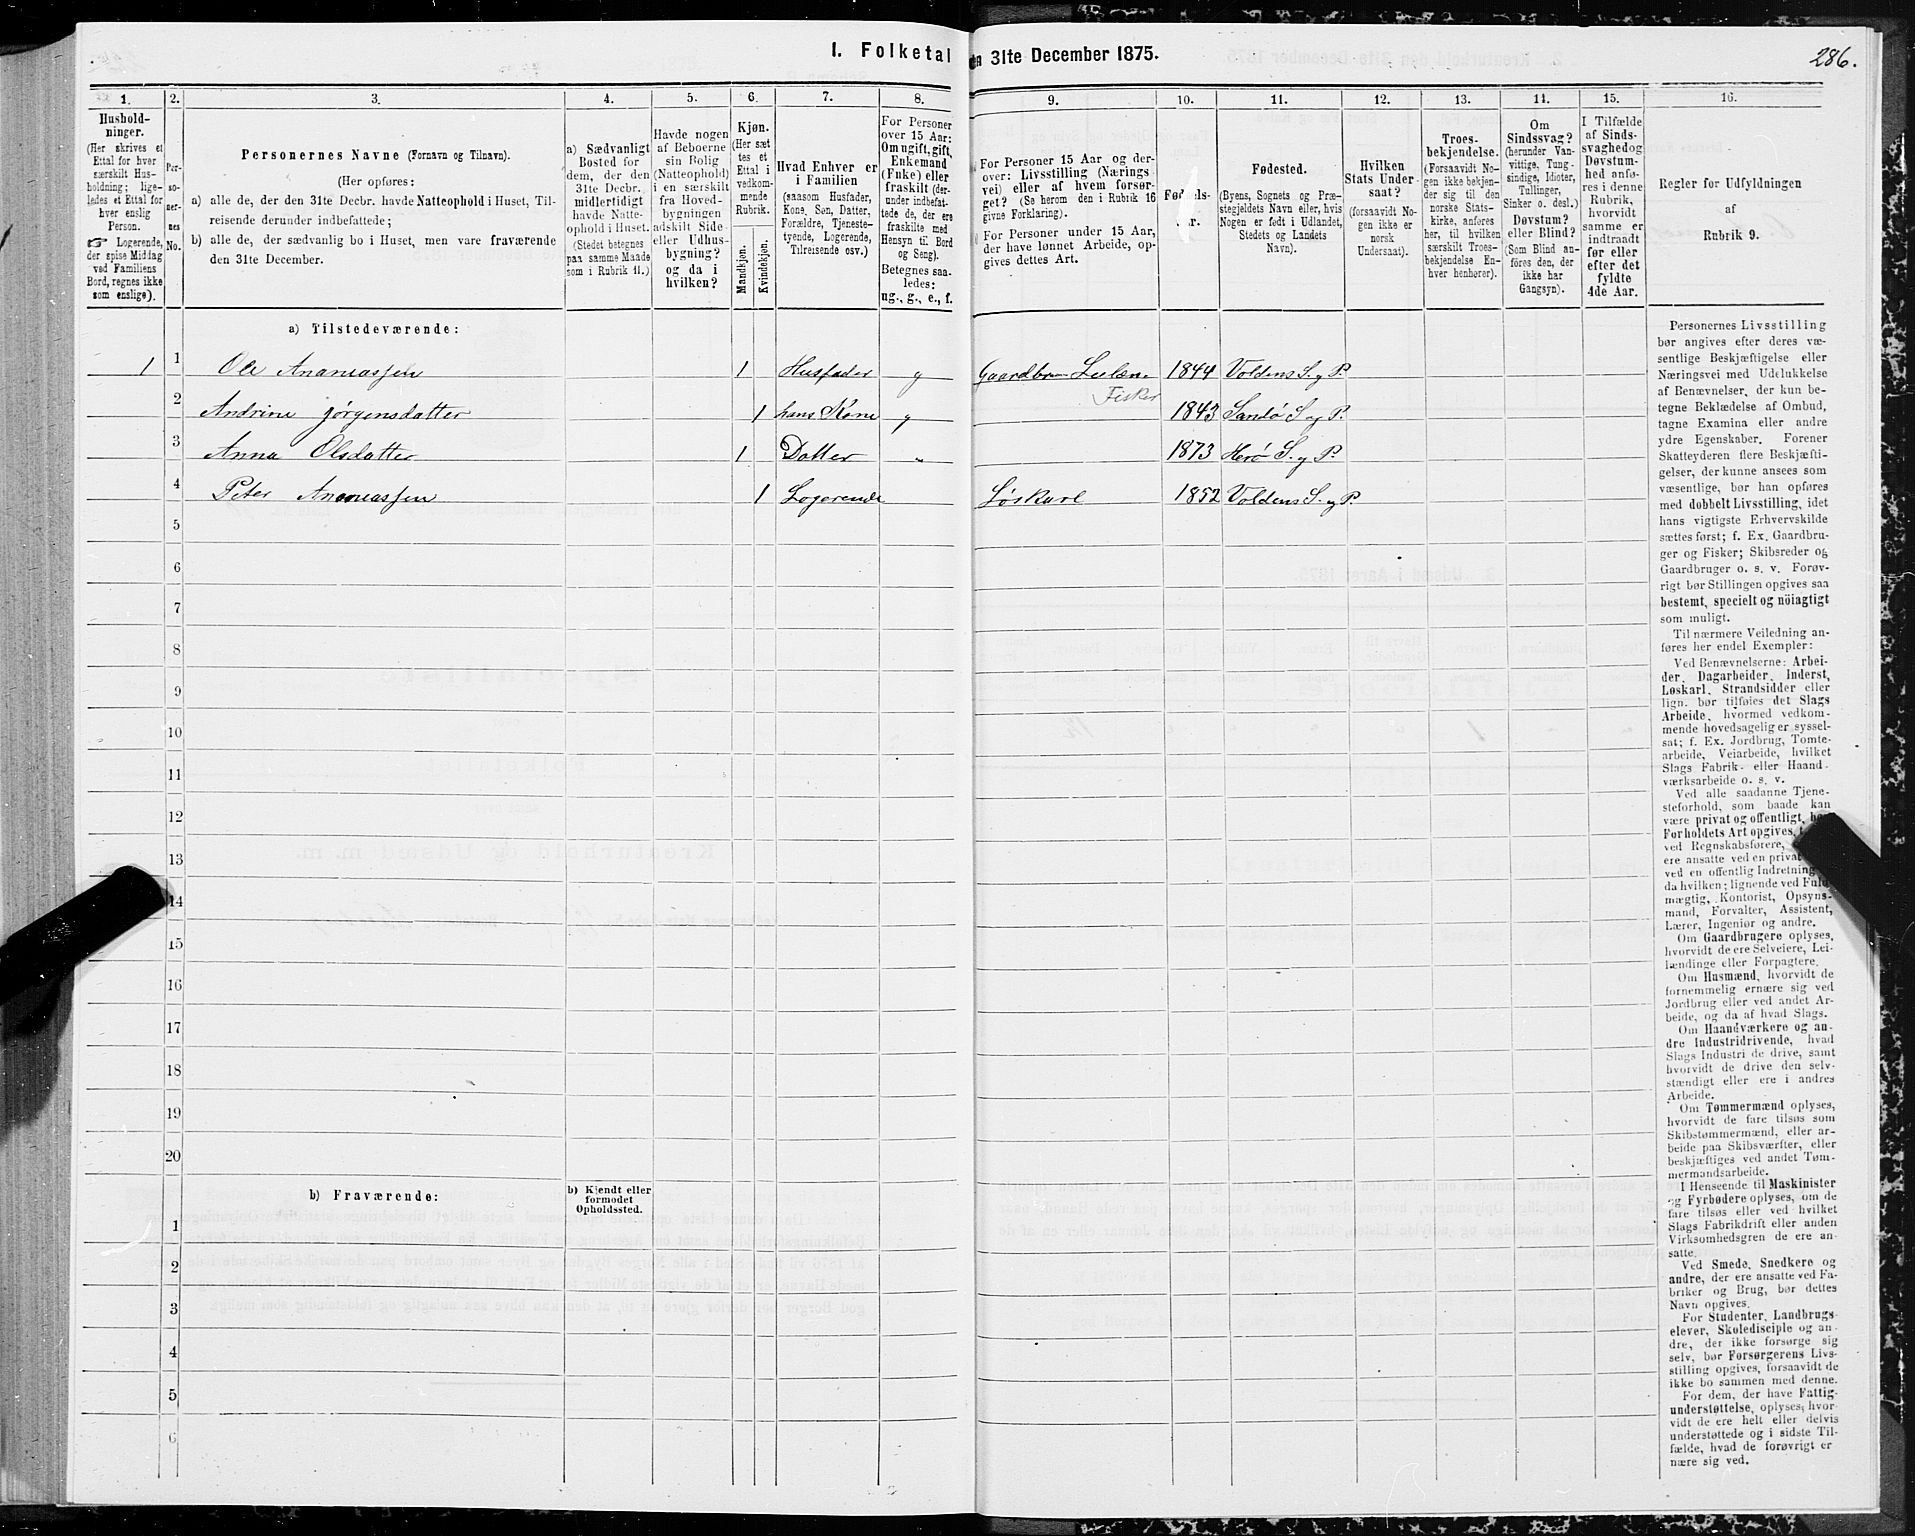 I. Folketal
den 31te December 1875.
286.
1.
2.
3.
4.
5.
6.
7.
8.
9.
10.
11.
12.
13.
14.
15.
16.
Hushold-
ninger.
(Her skrives et
Ettal for hver
særskilt Hus-
holdning; lige-
ledes et Ettal for
hver enslig
Person.
☞ Logerende,
der spise Middag
ved Familiens
Bord, regnes ikke
som enslige).
Per-
so-
ner-
nes
No.
Personernes Navne (Fornavn og Tilnavn).
(Her opføres:
a) alle de, der den 31te Decbr. havde Natteophold i Huset, Til-
reisende derunder indbefattede;
b) alle de, der sædvanlig bo i Huset, men vare fraværende
den 31te December.
a) Sædvanligt
Bosted for
dem, der den
31te Decbr.
midlertidigt
havde Natte-
ophold i Huset.
(Stedet betegnes
paa samme Maade
som i Rubrik 11.)
Havde nogen
af Beboerne
sin Bolig
(Natteophold)
i en særskilt
fra Hoved-
bygningen
adskilt Side-
eller Udhus-
bygning?
og da i
hvilken?
Kjøn.
(Her sæt-
tes et
Ettal i
vedkom-
mende
Rubrik.
Mandkjøn.
Kvindekjøn.
Hvad Enhver er
i Familien
(saasom Husfader,
Kone, Søn, Datter,
Forældre, Tjeneste-
tyende, Logerende,
Tilreisende osv.)
For Personer
over 15 Aar:
Om ugift, gift,
Enkemand
(Enke) eller
fraskilt (der-
under indbefat-
tede de, der ere
fraskilte med
Hensyn til Bord
og Seng).
Betegnes saa-
ledes:
ug., g., e., f.
For Personer 15 Aar og der-
over: Livsstilling (Nærings-
vei) eller af hvem forsør-
get? (Se herom den i Rubrik 16
givne Forklaring).
For Personer under 15 Aar,
der have lønnet Arbeide, op-
gives dettes Art.
Fødels-
Fødested.
(Byens, Sognets og Præ-
stegjeldets Navn eller, hvis
Nogen er født i Udlandet,
Stedets og Landets
Navn).
Hvilken
Stats Under-
saat?
(forsaavidt No-
gen ikke er
norsk
Undersaat).
Troes-
bekjendelse.
(Forsaavidt No-
gen ikke bekjen-
der sig til den
norske Stats-
kirke, anføres
her, til hvilken
særskilt Troes-
bekjendelse En-
hver henhører).
Om
Sindssvag?
(herunder Van-
vittige, Tung-
sindige, Idioter,
Tullinger,
Sinker o. desl.)
Døvstum?
eller Blind?
(Som Blind an-
føres den, der
ikke har
Gangsyn).
I Tilfælde
af Sinds-
svaghed og
Døvstum-
hed anfø-
res i denne
Rubrik,
hvorvidt
samme er
indtraadt
før eller
efter det
fyldte
4de Aar.
Regler for Udfyldningen
af
Rubrik 9.
a) Tilstedeværende:
1 1 Ole Ananiassen 1 Husfader g Gaardbru Leilæn. 1844 Voldens S. og P.
Fisker
2 Andrine Jørgensdatter 1 hans Kone g 1843 Sandø S og P.
3 Anna Olsdatter 1 Datter „ 1873 Herø S. og P.
4 Peter Ananiassen 1 Logerende Løskarl 1852 Voldens S. og P.
5
6
7
8
9
10
11
12
13
14
15
16
17
18
19
20
b) Fraværende:
b) Kjendt eller
formodet
Opholdssted.
1
2
3
4
5
6
Personernes Livsstilling
bør angives efter deres væ-
sentlige Beskjæftigelse eller
Næringsvei med Udelukkelse
af Benævnelser, der kun be-
tegne Beklædelse af Ombud,
tagne Examina eller andre
ydre Egenskaber. Forener
Skatteyderen flere Beskjæfti-
gelser, der kunne ansees som
væsentlige, bør han opføres
med dobbelt Livsstilling, idet
hans vigtigste Erhvervskilde
sættes først; f. Ex. Gaardbru-
ger og Fisker; Skibsreder og
Gaardbruger o. s. v. Forøv-
rigt bør Stillingen opgives saa
bestemt, specielt og nöiagtigt
som muligt.
Til nærmere Veiledning an-
føres her endel Exempler:
Ved Benævnelserne: Arbei-
der, Dagarbeider, Inderst,
Løskarl, Strandsidder eller
lign. bør tilføies det Slags
Arbeide, hvormed vedkom-
mende hovedsagelig er syssel-
sat; f. Ex. Jordbrug, Tomte-
arbeide, Veiarbeide, hvilket
Slags Fabrik- eller Haand-
værksarbeide o. s. v.
Ved alle saadanne Tjene-
steforhold, som baade kan
være privat og offentligt, bør
Forholdets Art opgives,
ved Regnskabsførere,
ere ansatte ved en privat
ved en offentlig Indretning
da hvilken; lignende ved Fuld-
mægtig, Kontorist, Opsyns-
mand, Forvalter, Assistent,
Lærer, Ingeniør og andre.
Om Gaardbrugere oplyses,
hvorvidt de ere Selveiere, Lei-
lændinge eller Forpagtere.
Om Husmænd, hvorvidt de
fornemmelig ernære sig ved
Jordbrug eller ved andet Ar-
beide, og da af hvad Slags.
Om Haandværkere og an-
dre Industridrivende, hvad
Slags Industri de drive, samt
hvorvidt de drive den selv-
stændigt eller ere i andres
Arbeide.
Om Tømmermænd oplyses,
hvorvidt de fare tilsøs som
Skibstømmermænd, eller ar-
beide paa Skibsværfter, eller
beskjæftiges ved andet Tøm-
mermandsarbeide.
I Henseende til Maskinister
og Fyrbødere oplyses, om de
fare tilsøs eller ved hvilket
Slags Fabrikdrift eller anden
Virksomhedsgren de ere an-
satte.
Ved Smede, Snedkere og
andre, der ere ansatte ved Fa-
briker og Brug, bør dettes
Navn opgives.
For Studenter, Landbrugs-
elever, Skoledisciple og an-
dre, der ikke forsørge sig
selv, bør Forsørgerens Livs-
stilling opgives, forsaavidt de
ikke bo sammen med denne.
For dem, der have Fattig-
understøttelse, oplyses, hvor-
vidt de ere helt eller delvis
understøttede og i sidste Til-
fælde, hvad de forøvrigt er
nære sig ved.